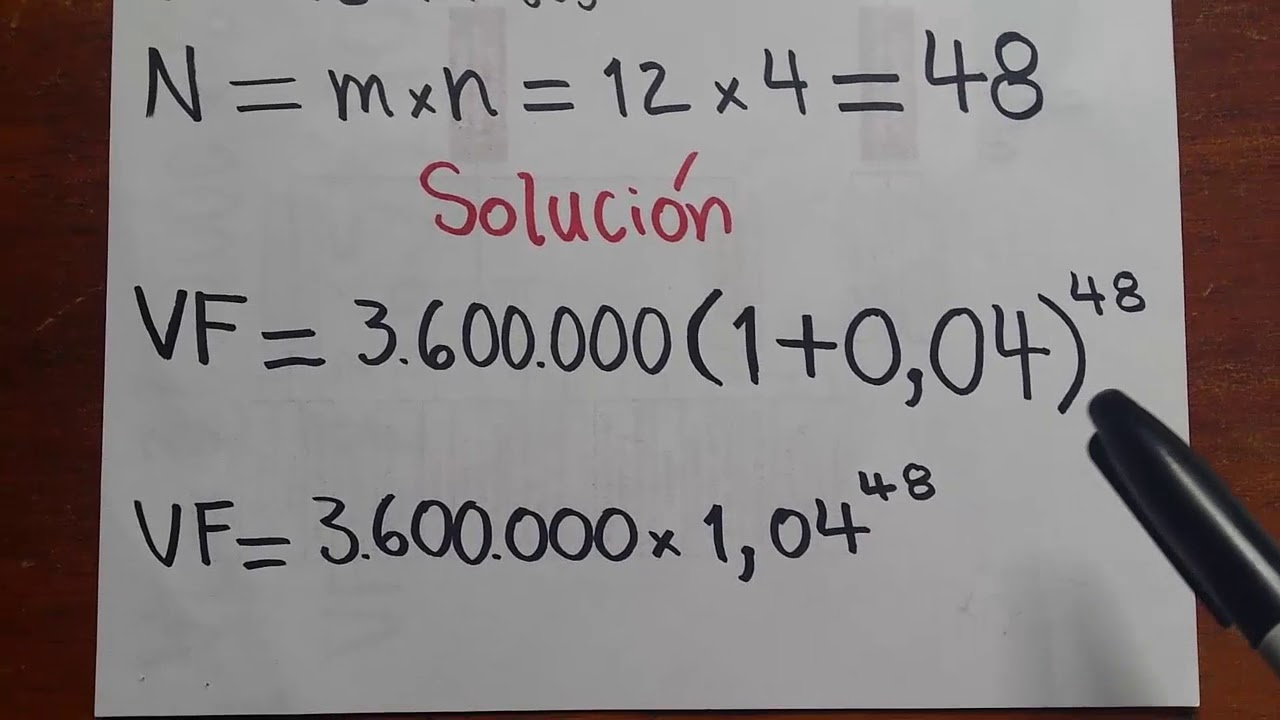 N = m×n = 12 × 4 = 48
Solución
VF = 3.600.000(1+0,04)⁴⁸
VF = 3.600.000 × 1,04⁴⁸